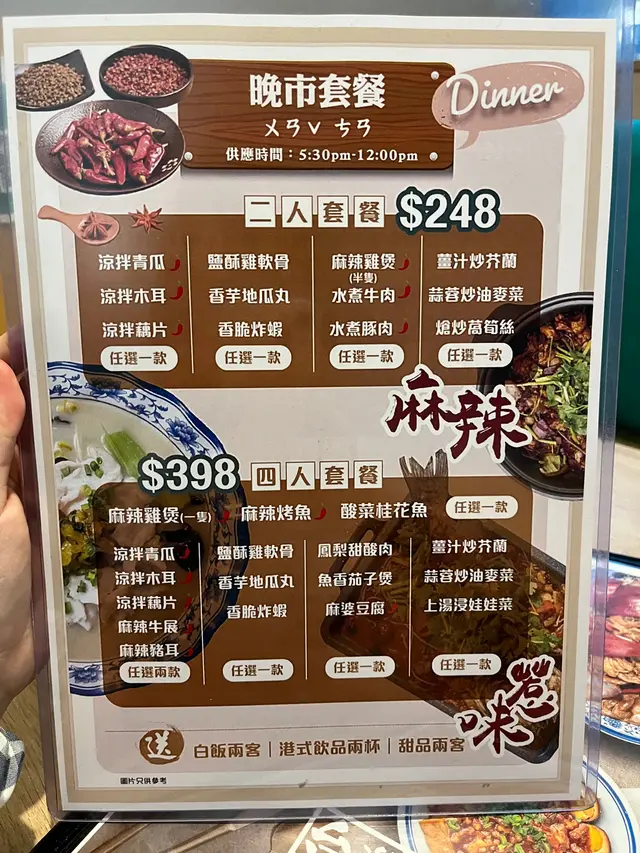 晚市套餐
Dinner
ㄨㄢˇ ㄘㄢ
供應時間：5:30pm-12:00pm
二人套餐 $248
涼拌青瓜 鹽酥雞軟骨 麻辣雞煲(半隻) 薑汁炒芥蘭
涼拌木耳 香芋地瓜丸 水煮牛肉 蒜蓉炒油麥菜
涼拌藕片 香脆炸蝦 水煮豚肉 熗炒萵筍絲
任選一款 任選一款 任選一款 任選一款
麻辣
$398 四人套餐
麻辣雞煲(一隻) 麻辣烤魚 酸菜桂花魚 任選一款
涼拌青瓜 鹽酥雞軟骨 鳳梨甜酸肉 薑汁炒芥蘭
涼拌木耳 香芋地瓜丸 魚香茄子煲 蒜蓉炒油麥菜
涼拌藕片 香脆炸蝦 麻婆豆腐 上湯浸娃娃菜
麻辣牛展
麻辣豬耳
任選兩款 任選一款 任選一款 任選一款
惹味
送 白飯兩客｜港式飲品兩杯｜甜品兩客
圖片只供參考